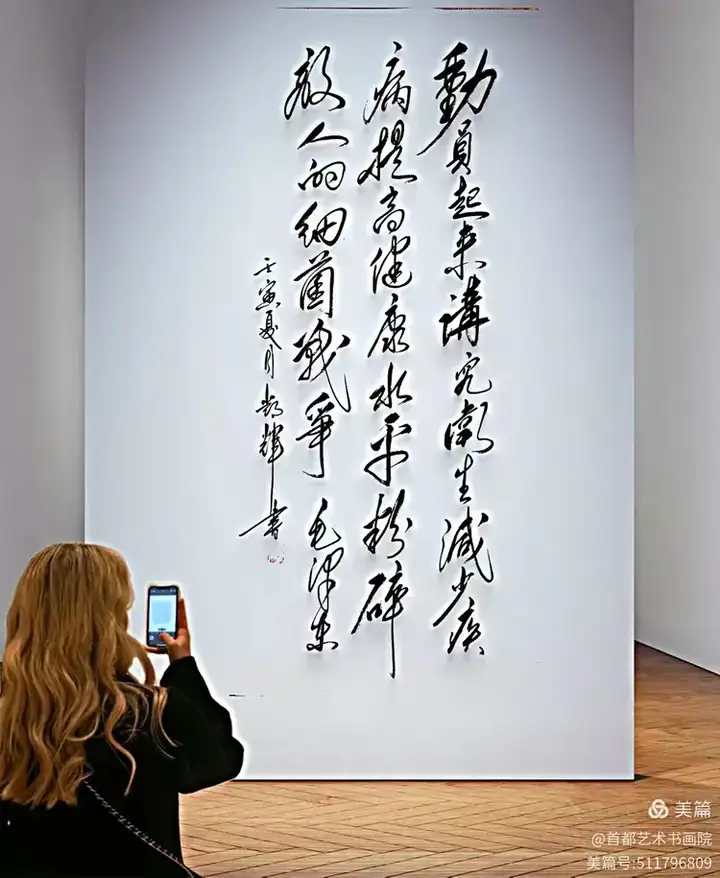 動員起来講究衛生減少疾
病提高健康水平粉碎
敵人的細菌戰爭 毛澤東
壬寅夏月 輝書
美篇
@首都艺术书画院
美篇号:511796809